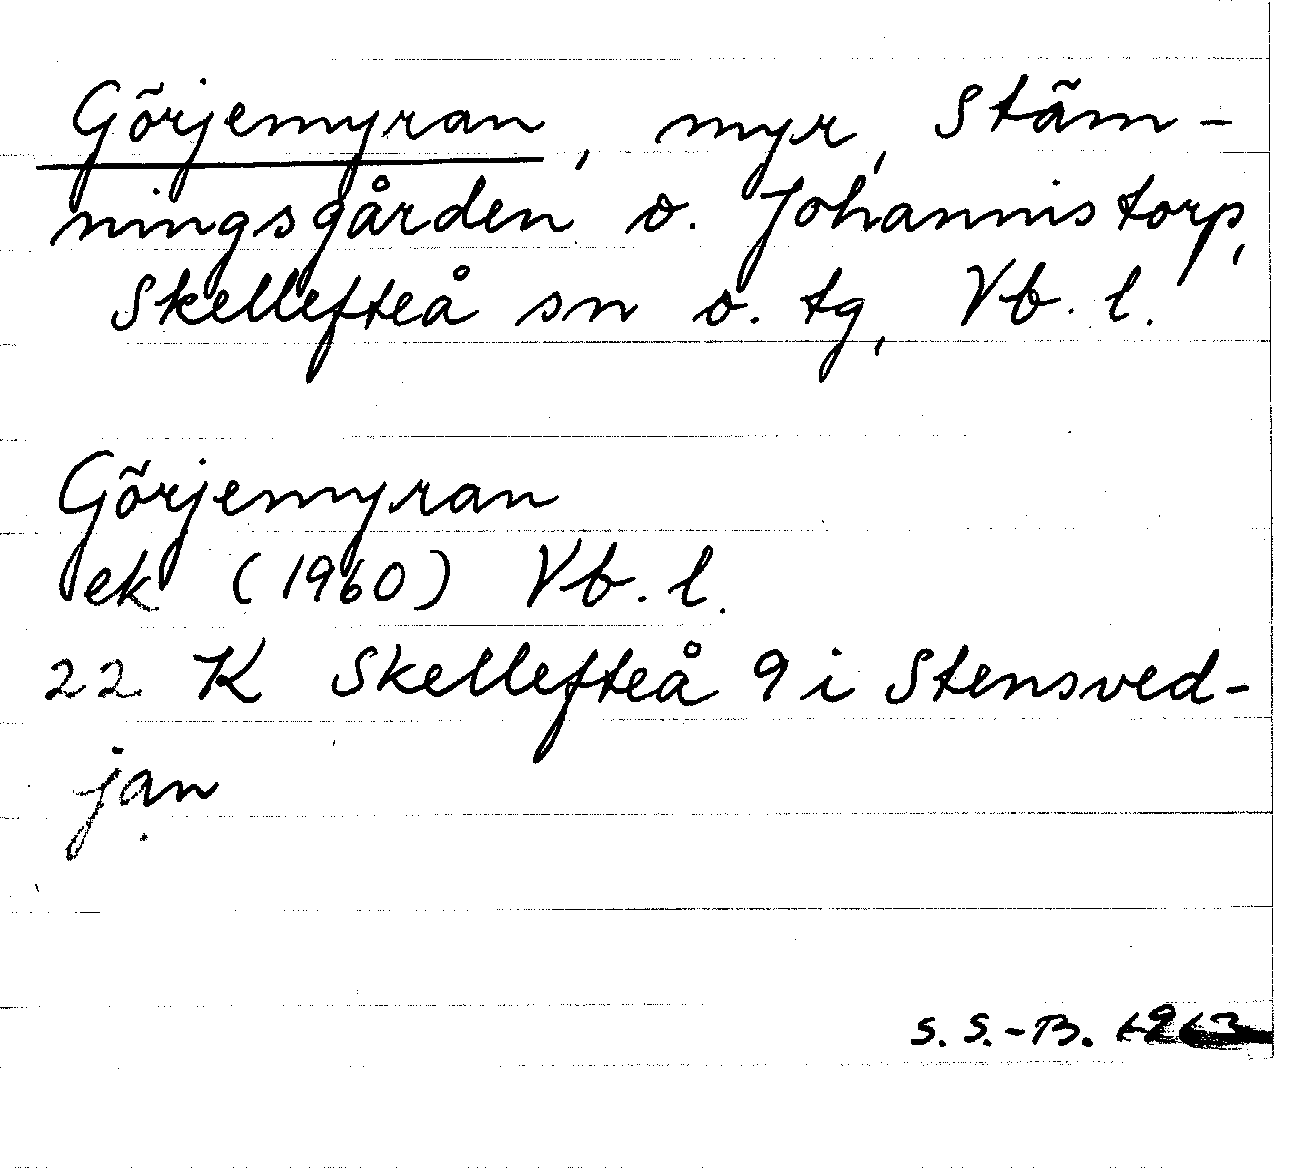 Görjemyran, myr, Stäm-
ningsgården o. Johannistorp,
Skellefteå sn o. tg, Vb. l.
Görjemyran
ek (1960) Vb. l.
22 K Skellefteå 9 i Stensved-
jan
S. S.-B. 1963